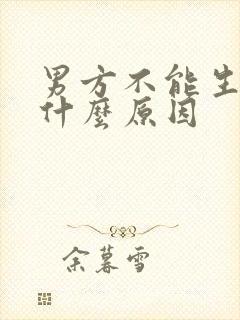 男方不能生
什麼原因
余暮雪